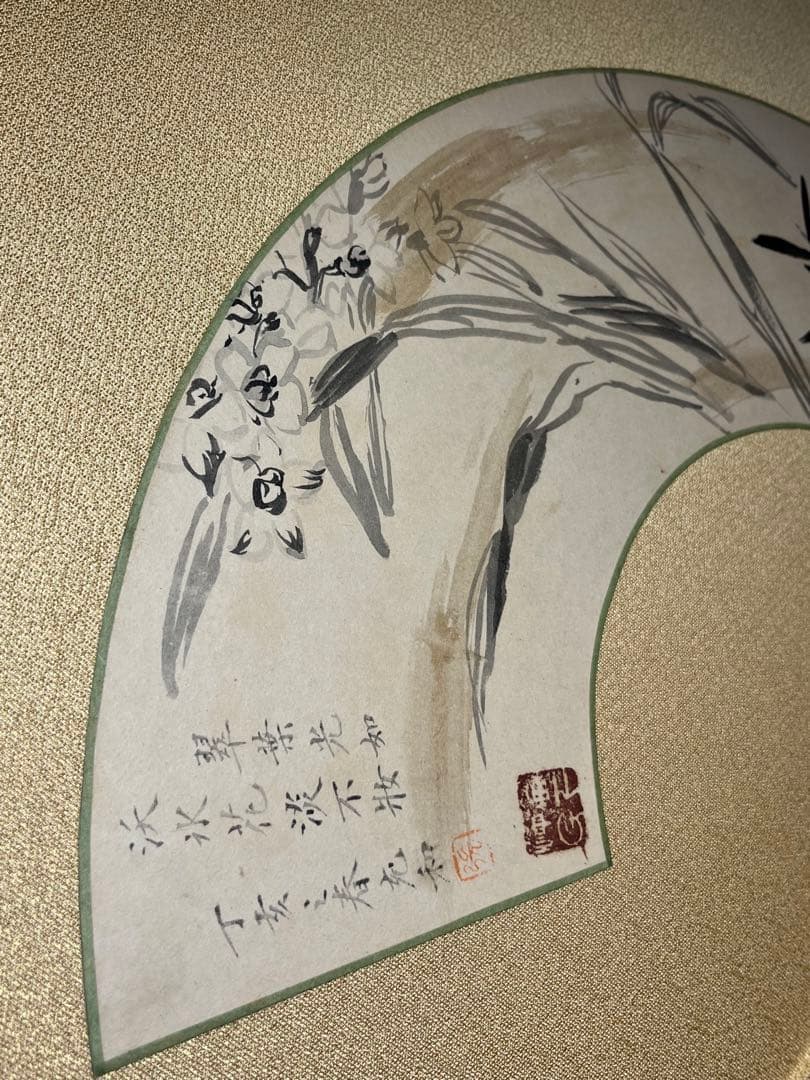 翠葉光如
沃冰花淡不妝
丁亥之春充和